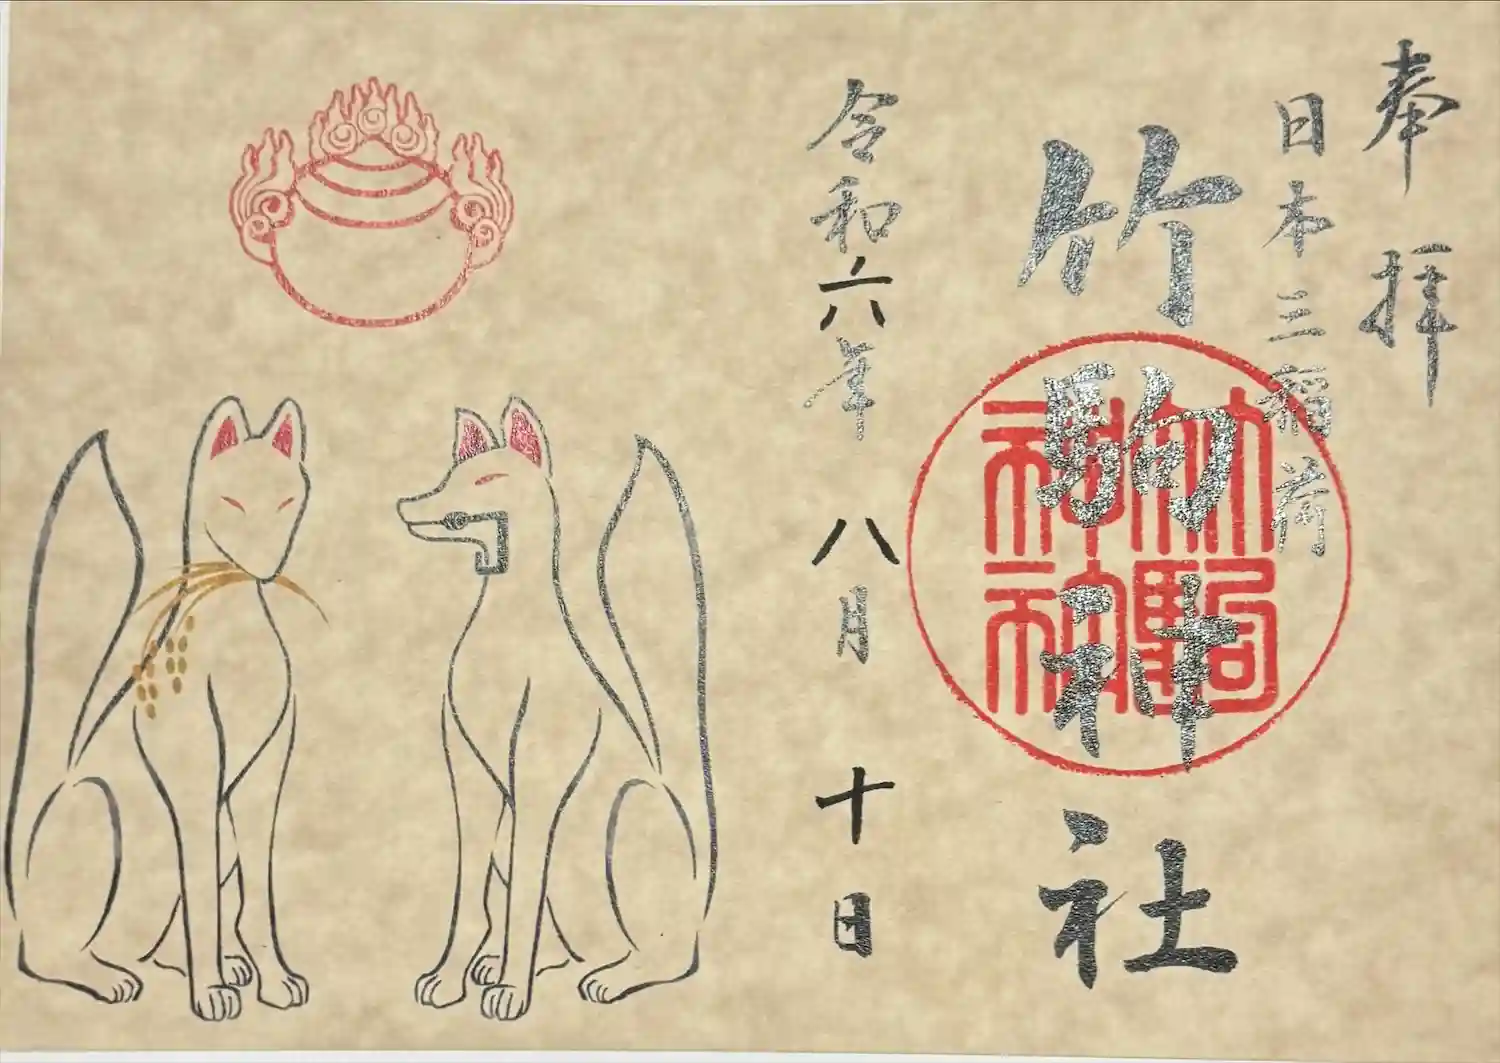 奉拝
日本三稲荷
竹駒神社
竹駒神社
令和六年八月十日